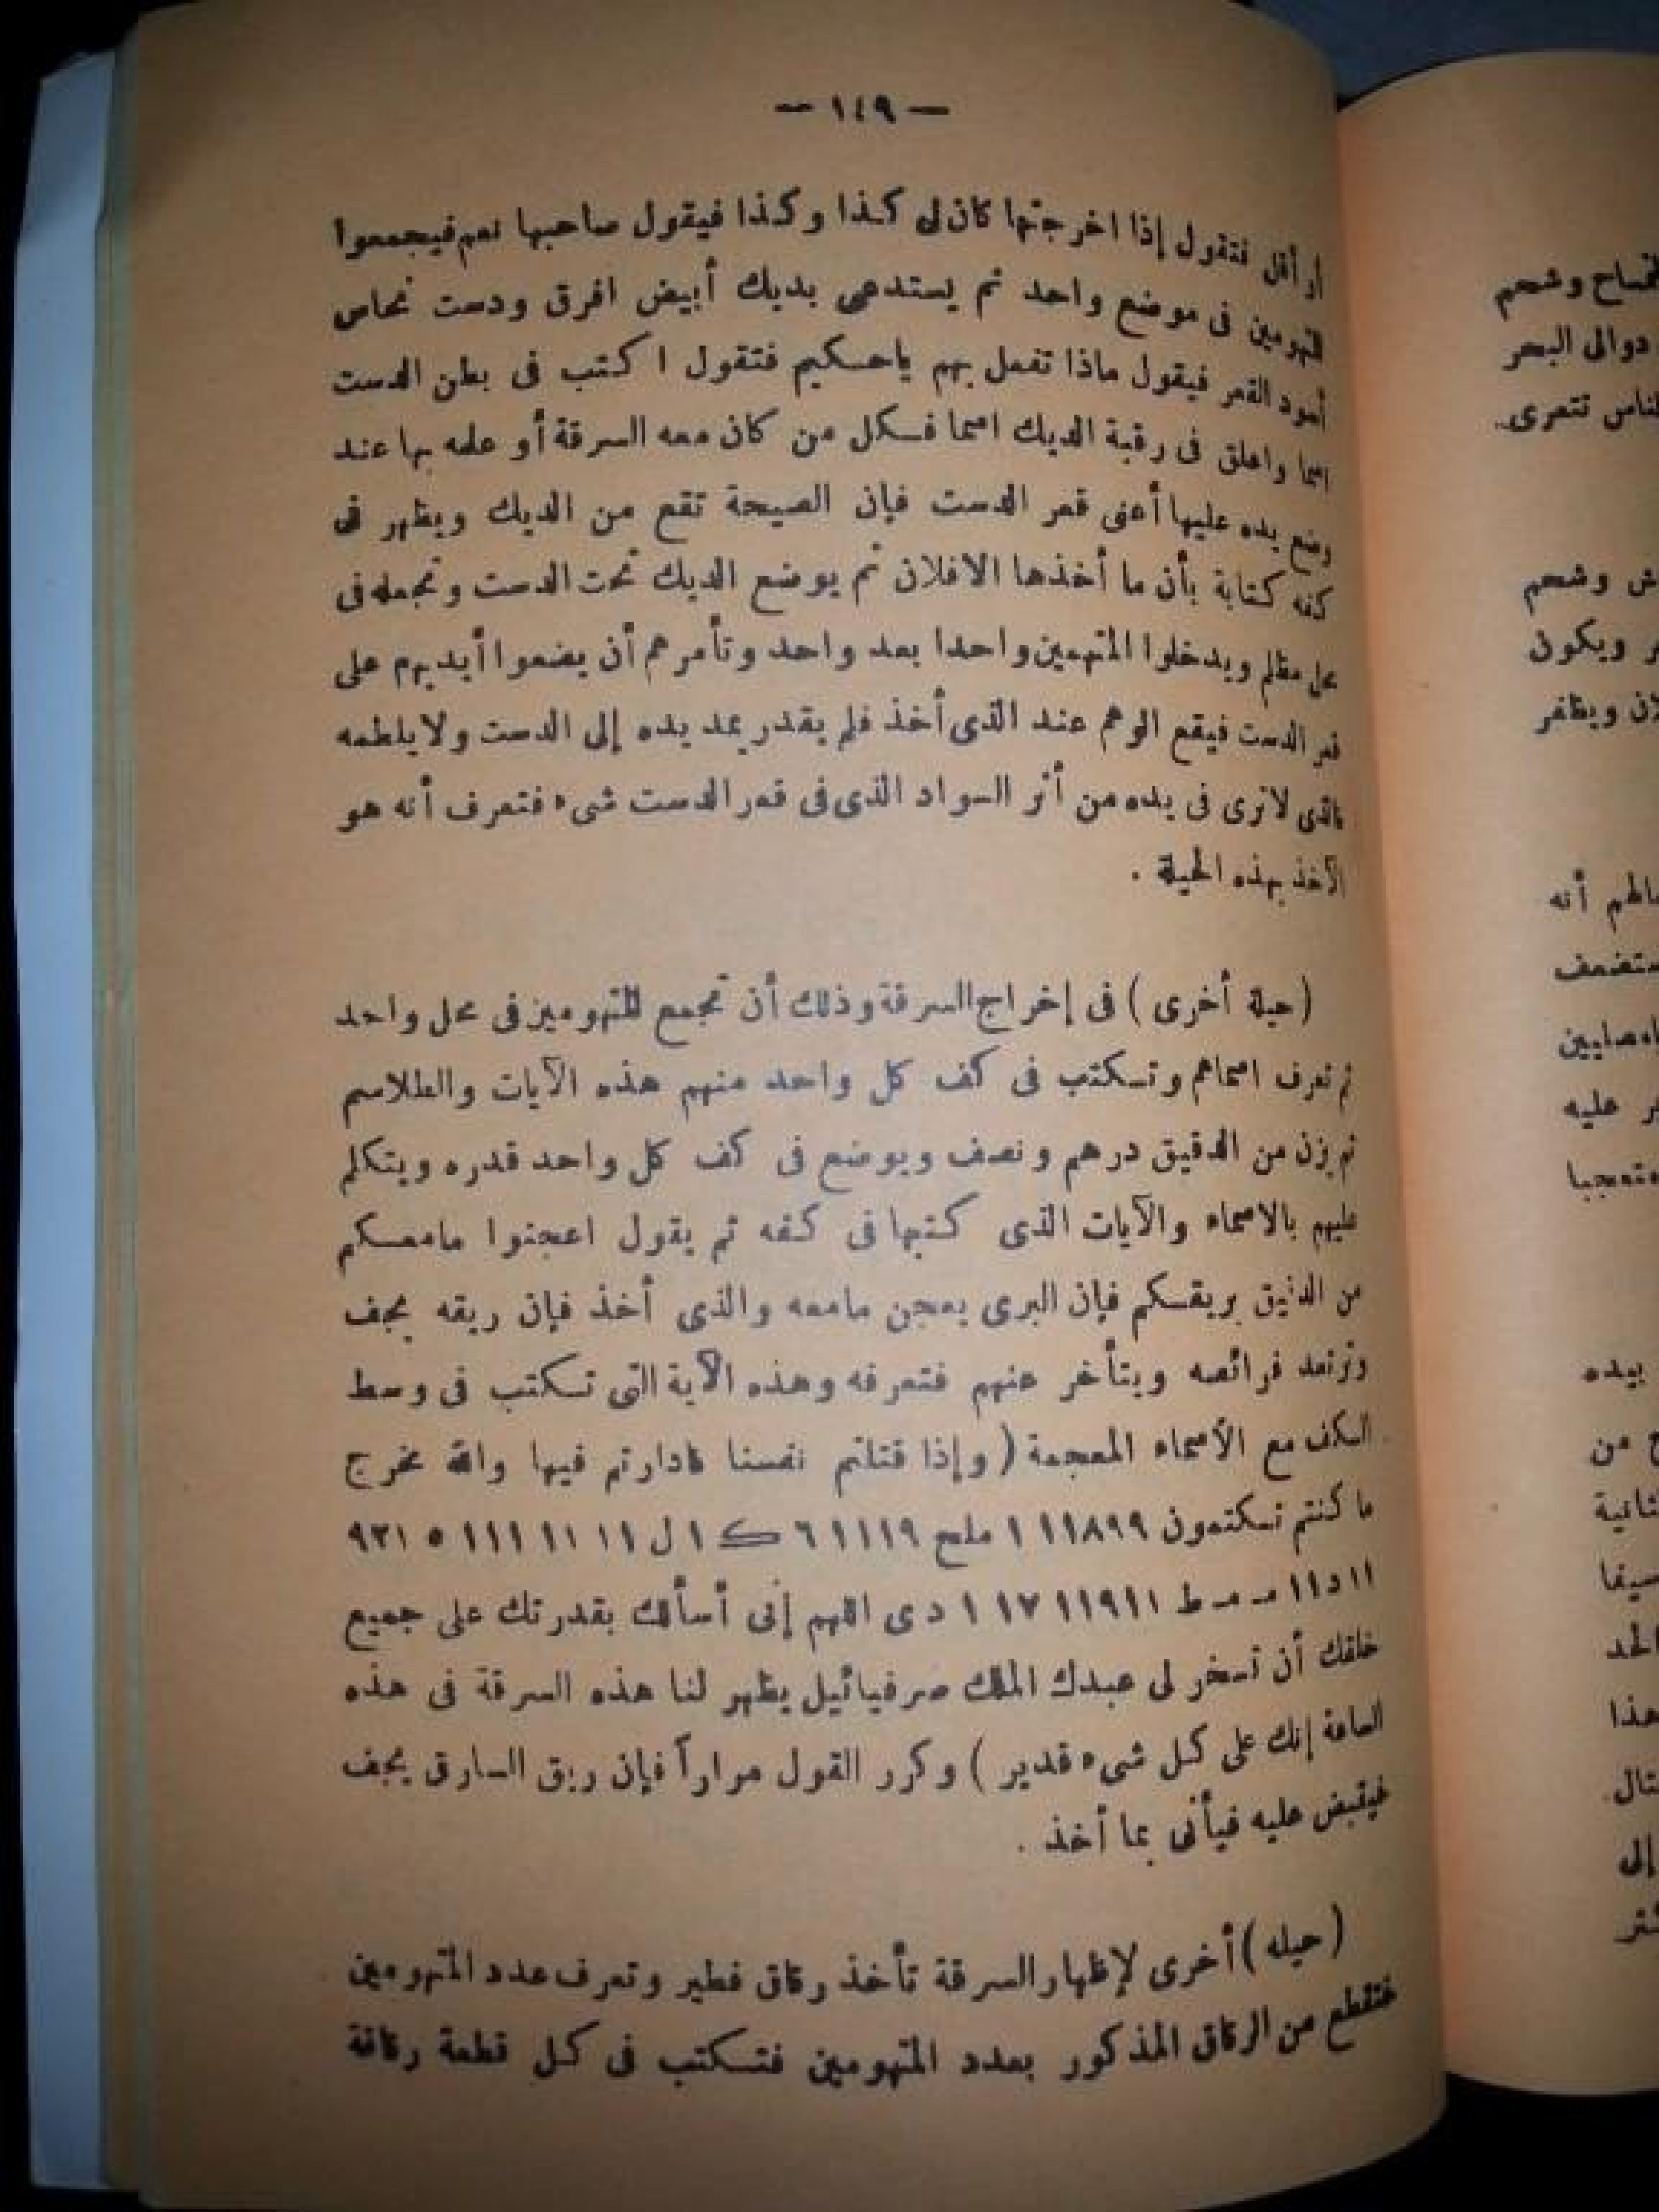 — ١٤٩ —
أو أقل فتقول إذا اخرجتها كان لى كذا وكذا فيقول صاحبها نعم فيجمعوا
المتهومين فى موضع واحد ثم يستدعى بديك أبيض افرق ودست نحاس
أسود القعر فيقول ماذا تفعل بهم ياحكيم فتقول ا كتب فى بطن الدست
اسما واعلق فى رقبة الديك اسما فكل من كان معه السرقة أو علمه بها عند
وضع يده عليها أعنى قعر الدست فإن الصيحة تقع من الديك ويظهر فى
كفه كتابة بأن ما أخذها الافلان ثم يوضع الديك تحت الدست وتجعله فى
محل مظلم ويدخلوا المتهمين واحدا بعد واحد وتأمرهم أن يضعوا أيديهم على
قعر الدست فيقع الوهم عند الذى أخذ فلم يقدر يمد يده إلى الدست ولايلطمه
فالذى لاترى فى يده من أثر السواد الذى فى قعر الدست شىء فتعرف أنه هو
الآخذ بهذه الحيلة .
(حيلة أخرى) فى إخراج السرقة وذلك أن تجمع المتهومين فى محل واحد
ثم تعرف اسماهم وتكتب فى كف كل واحد منهم هذه الآيات والطلاسم
ثم يزن من الدقيق درهم ونصف ويوضع فى كف كل واحد قدره ويتكلم
عليهم بالاسماء والآيات الذى كتبها فى كفه ثم يقول اعجنوا مامعكم
من الدقيق بريقكم فإن البرى يعجن مامعه والذى أخذ فإن ريقه يجف
وترتعد فرائصه ويتأخر عنهم فتعرفه وهذه الآية التى تكتب فى وسط
الكف مع الأسماء المعجمة ( وإذا قتلتم نفسنا فادارتم فيها والله مخرج
ما كنتم تكتمون ١١٨٩٩ ١ ملح ١١١٩ ٦ ك ١ ل ١١ ١١ ١١١ ٥ ٩٢١
١١ د١١ مـ مـ ط ١١٩١١ ١٧ ١ د ى اللهم إنى أسألك بقدرتك على جميع
خلقك أن تسخر لى عبدك الملك صرفيائيل يظهر لنا هذه السرقة فى هذه
الساعة إنك على كل شىء قدير ) وكرر القول مراراً فإن ريق السارق يجف
فيقبض عليه فيأتى بما أخذ .
(حيله) أخرى لإظهار السرقة تأخذ رقاق فطير وتعرف عدد المتهومين
فتقطع من الرقاق المذكور بعدد المتهومين فتكتب فى كل قطعة رقاقة
وشحم
دوالى البحر
تتعرى.
وشحم
ويكون
ويظفر
أنه
عليه
بيده
من
هذا
إلى